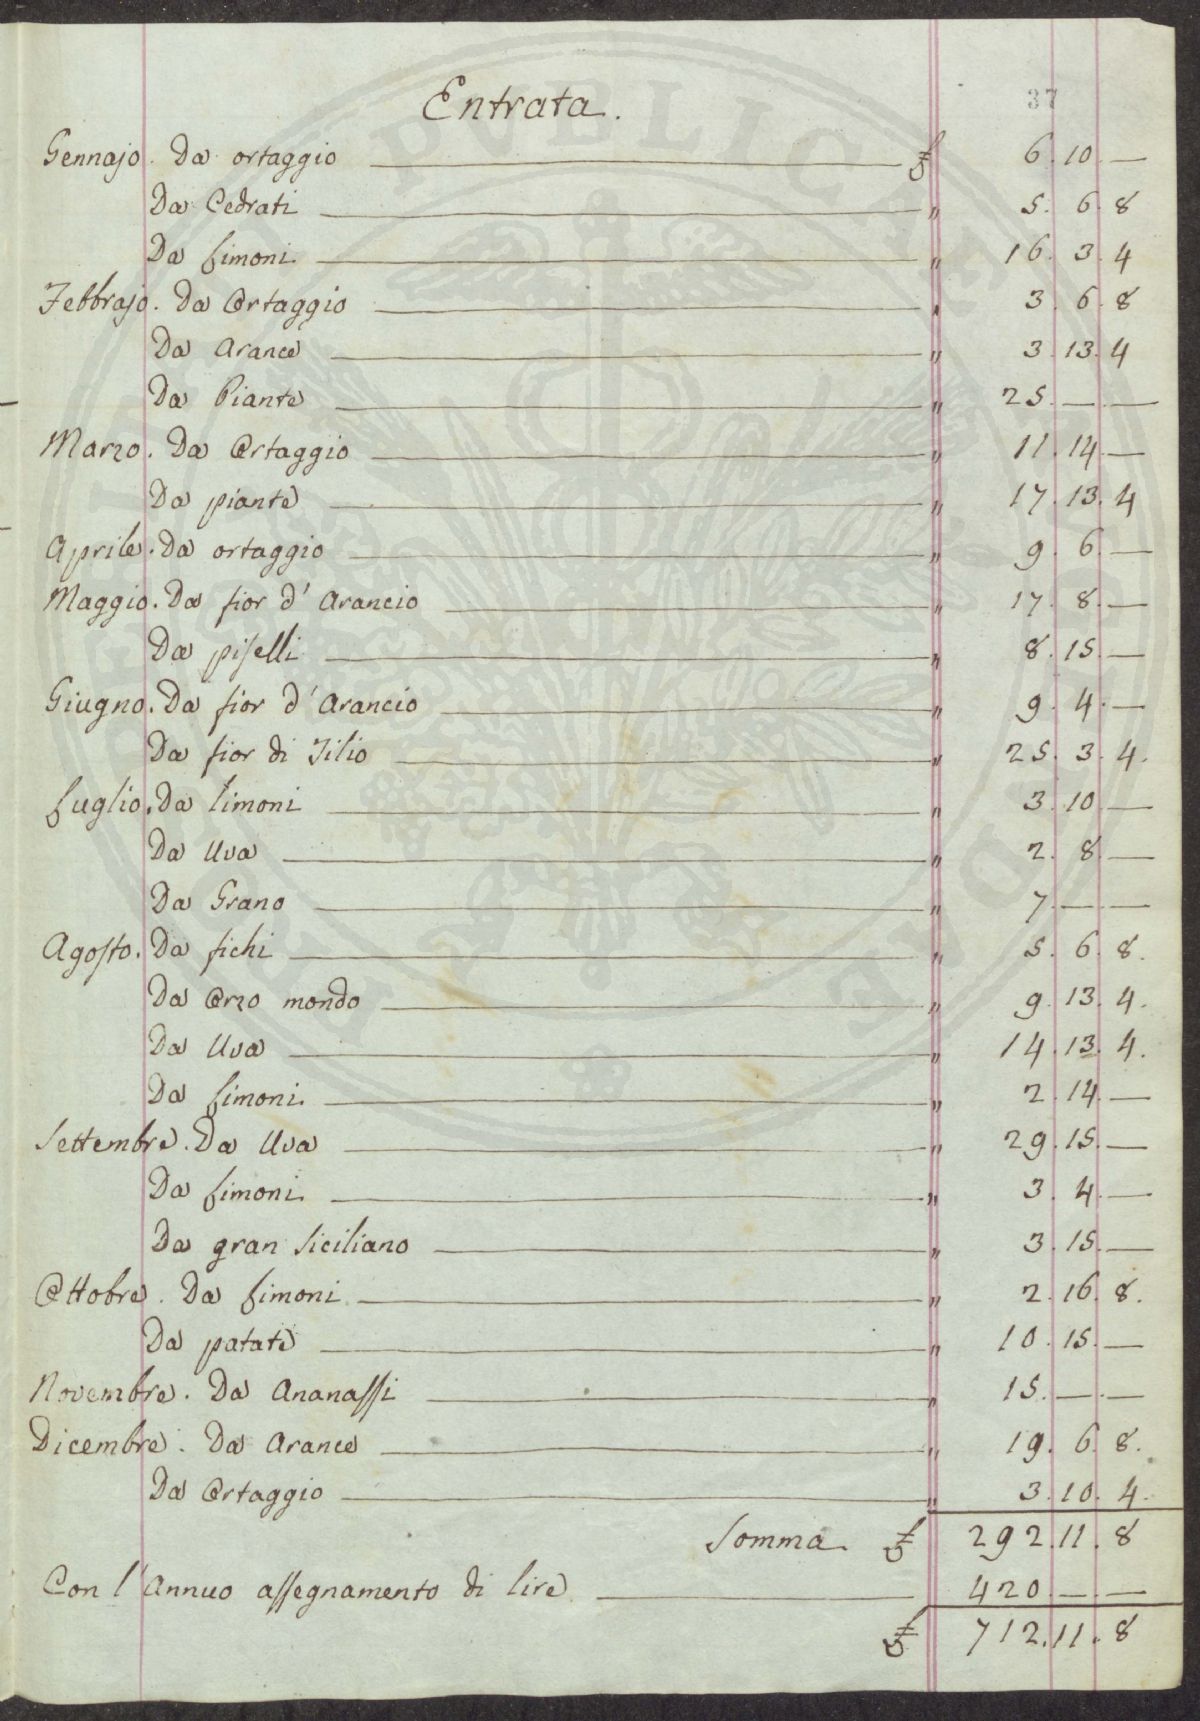 37
Entrata.
Gennajo. Da ortaggio £ 6. 10. —
Da Cedrati " 5. 6. 8
Da Limoni. " 16. 3. 4
Febbrajo. Da Ortaggio " 3. 6. 8
Da Arance " 3. 13. 4
Da Piante " 25. — —
Marzo. Da Ortaggio " 11. 14. —
Da piante " 17. 13. 4
Aprile. Da ortaggio " 9. 6. —
Maggio. Da fior d' Arancio " 17. 8. —
Da piselli " 8. 15. —
Giugno. Da fior d' Arancio " 9. 4. —
Da fior di Tilio " 25. 3. 4.
Luglio. Da limoni " 3. 10. —
Da Uva " 2. 8. —
Da Grano " 7. — —
Agosto. Da fichi " 5. 6. 8.
Da Orzo mondo " 9. 13. 4.
Da Uva " 14. 13. 4.
Da Limoni. " 2. 14. —
Settembre. Da Uva " 29. 15. —
Da Limoni. " 3. 4. —
Da gran Siciliano " 3. 15. —
Ottobre. Da Limoni. " 2. 16. 8.
Da patate " 10. 15. —
Novembre. Da Ananassi " 15. — —
Dicembre. Da Arance " 19. 6. 8.
Da Ortaggio " 3. 10. 4.
Somma £ 292. 11. 8
Con l'Annuo assegnamento di lire 420. — —
£ 712. 11. 8